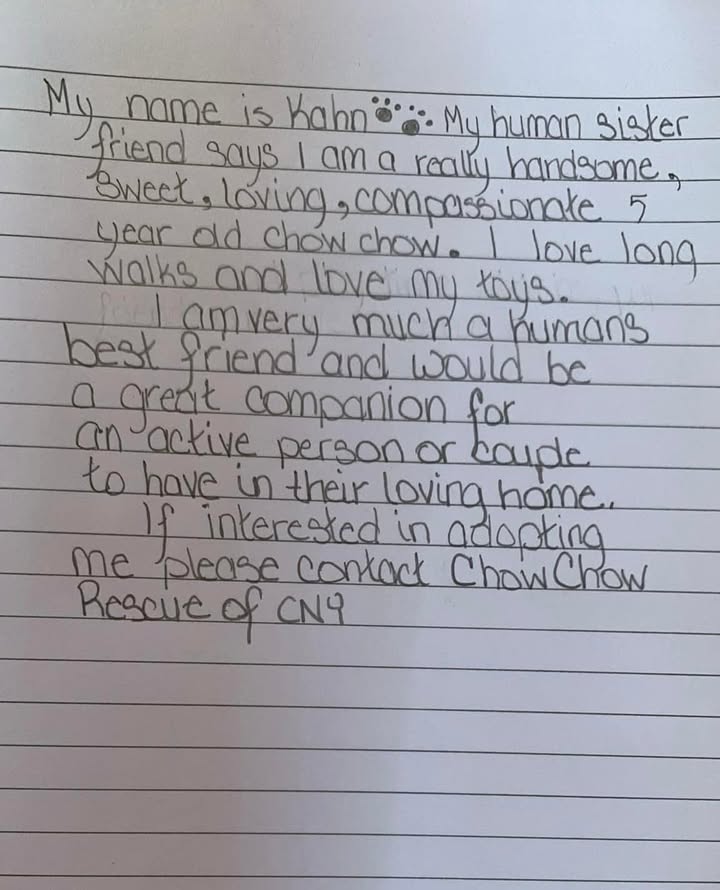 My name is Kahn 🐾. My human sister
friend says I am a really handsome,
sweet, loving, compassionate 5
year old chow chow. I love long
walks and love my toys.
I am very much a humans
best friend and would be
a great companion for
an active person or couple
to have in their loving home.
If interested in adopting
me please contact ChowChow
Rescue of CNY